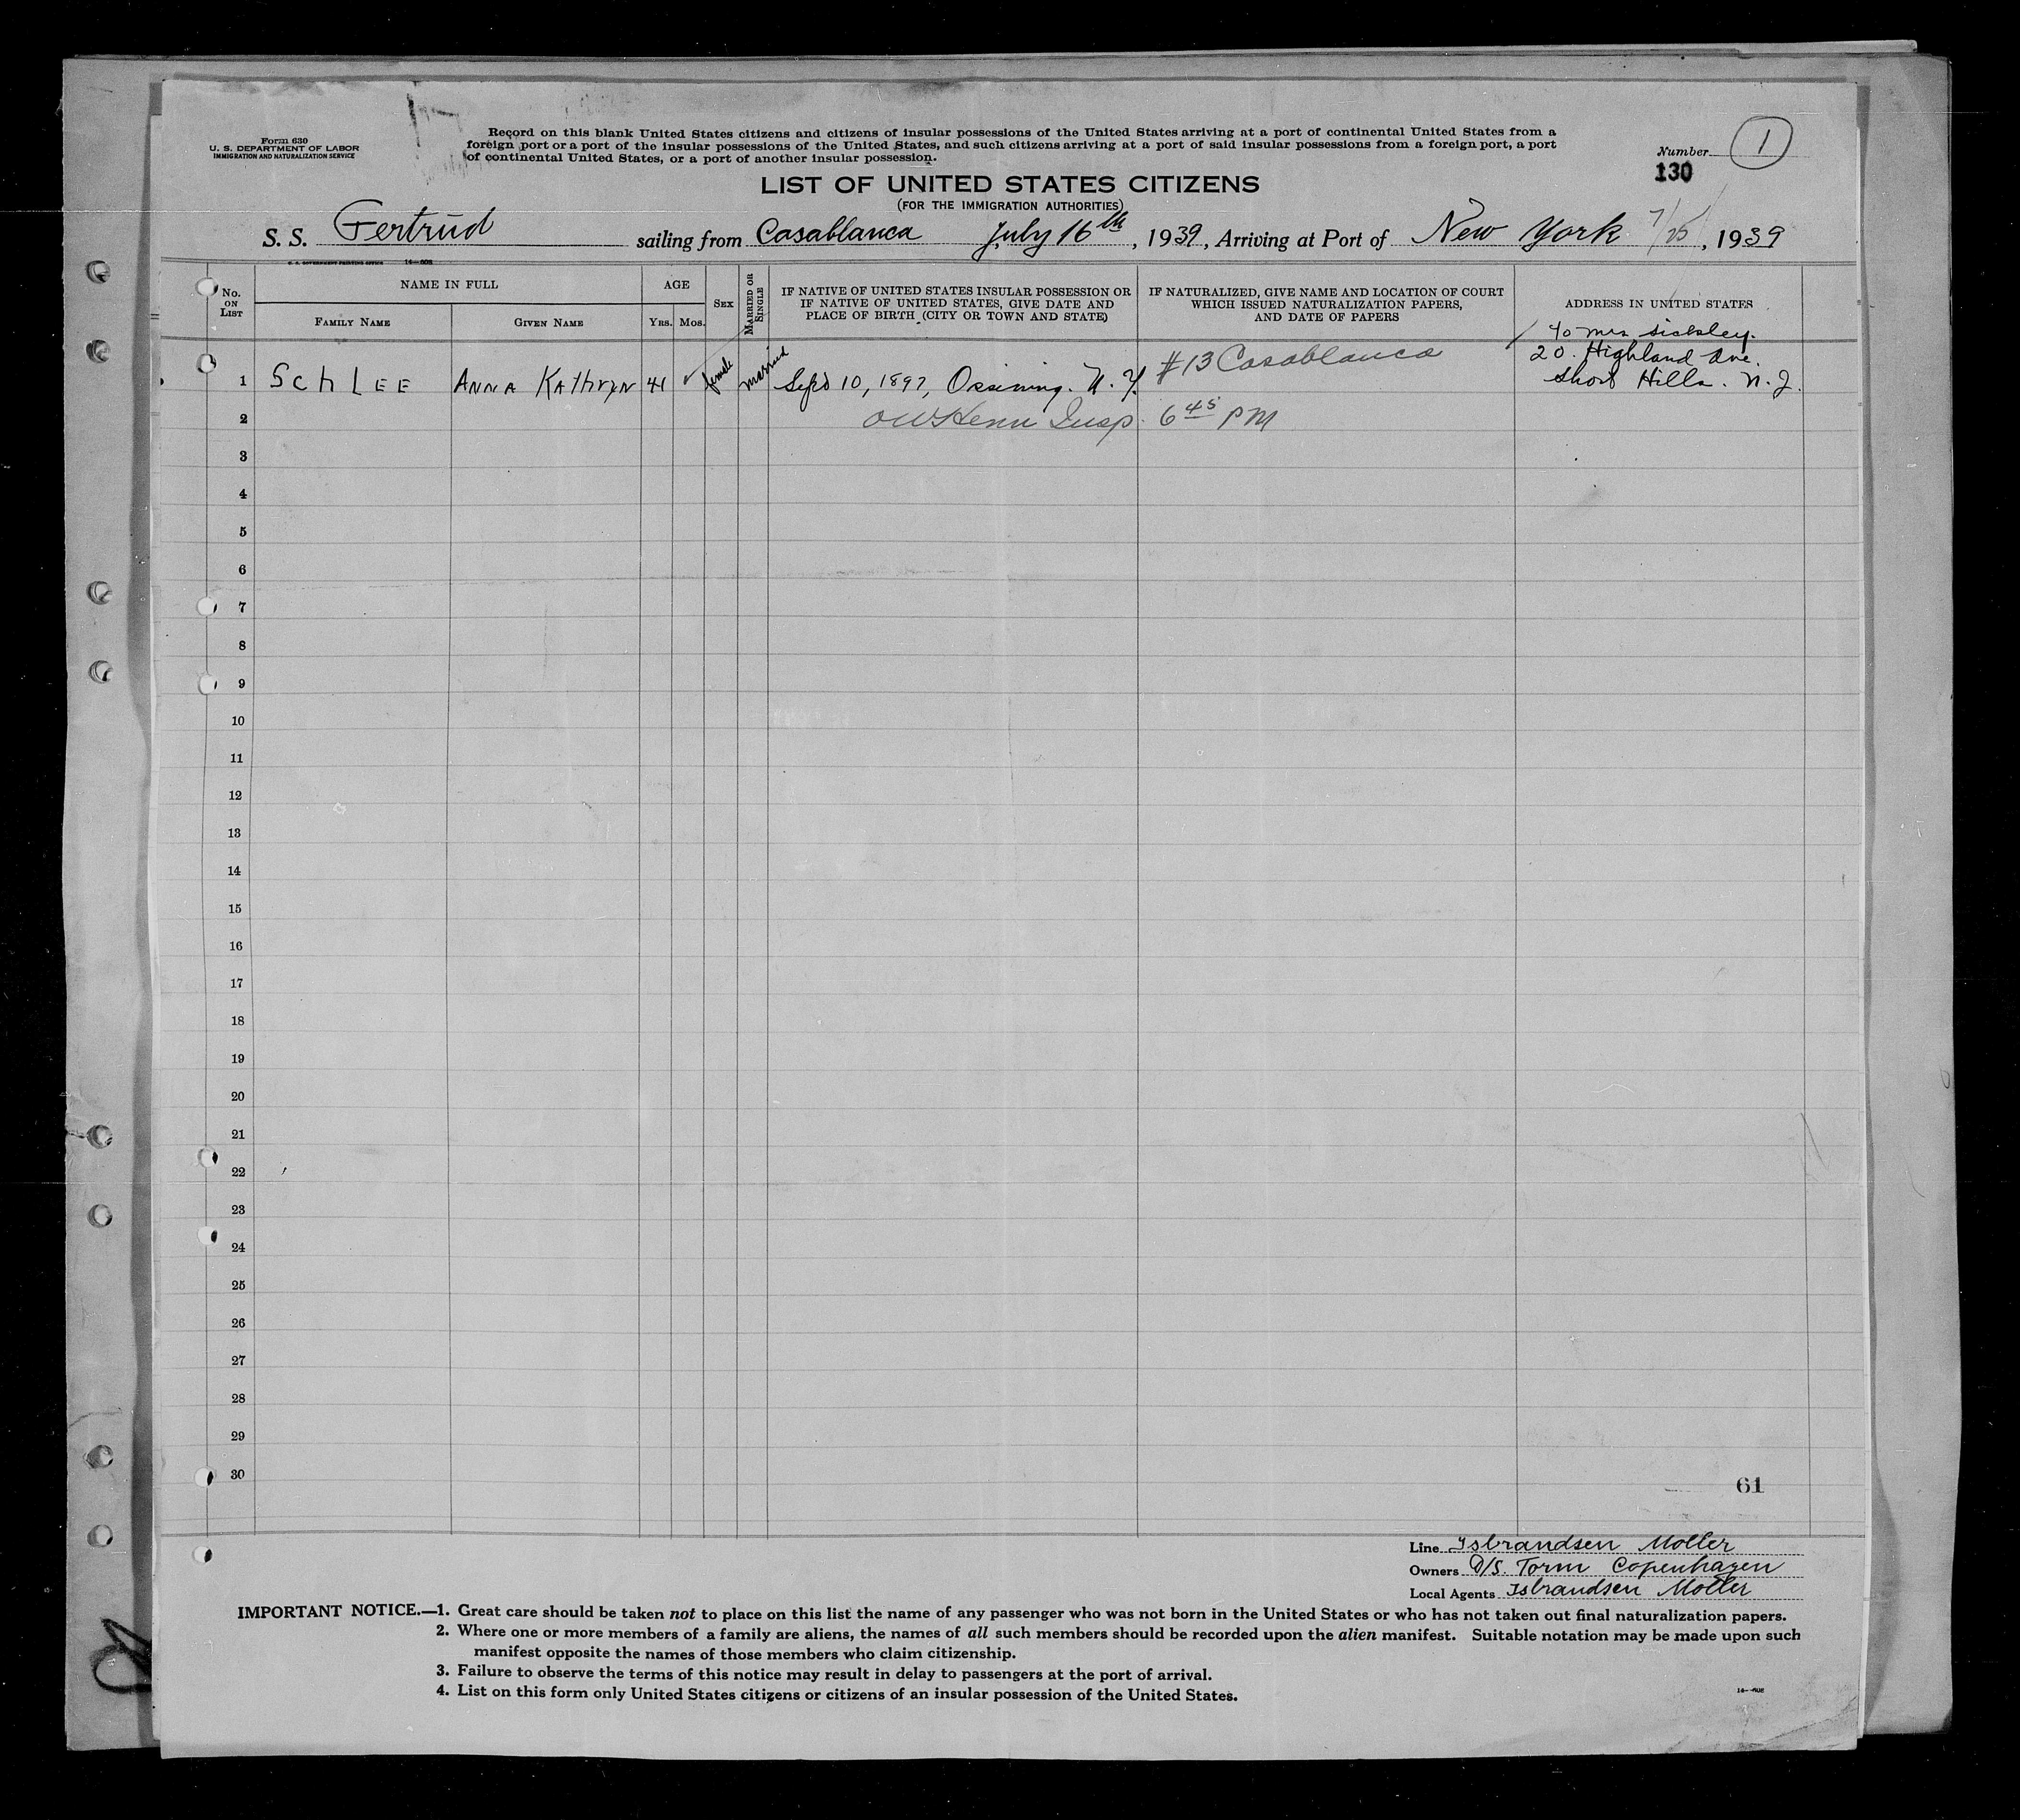 Form 630
U. S. DEPARTMENT OF LABOR
IMMIGRATION AND NATURALIZATION SERVICE
Record on this blank United States citizens and citizens of insular possessions of the United States arriving at a port of continental United States from a
foreign port or a port of the insular possessions of the United States, and such citizens arriving at a port of said insular possessions from a foreign port, a port
of continental United States, or a port of another insular possession.
Number 1
130
LIST OF UNITED STATES CITIZENS
(FOR THE IMMIGRATION AUTHORITIES)
S. S. Gertrud sailing from Casablanca July 16th, 1939, Arriving at Port of New York 7/25, 1939
U. S. GOVERNMENT PRINTING OFFICE
No. ON LIST
NAME IN FULL
FAMILY NAME
GIVEN NAME
AGE
YRS. MOS.
SEX
MARRIED OR SINGLE
IF NATIVE OF UNITED STATES INSULAR POSSESSION OR
IF NATIVE OF UNITED STATES, GIVE DATE AND
PLACE OF BIRTH (CITY OR TOWN AND STATE)
IF NATURALIZED, GIVE NAME AND LOCATION OF COURT
WHICH ISSUED NATURALIZATION PAPERS,
AND DATE OF PAPERS
ADDRESS IN UNITED STATES
1 SCHLEE ANNA KATHRYN 41 female married Sept 10, 1897, Ossining. N. Y. #13 Casablanca
Mrs Sickley.
20. Highland Ave.
Short Hills. N. J.
2 Insp. 6 45 PM
3
4
5
6
7
8
9
10
11
12
13
14
15
16
17
18
19
20
21
22
23
24
25
26
27
28
29
30
61
Line Isbrandsen Moller
Owners D/S. Torm Copenhagen
Local Agents Isbrandsen Moller
IMPORTANT NOTICE.—1. Great care should be taken not to place on this list the name of any passenger who was not born in the United States or who has not taken out final naturalization papers.
2. Where one or more members of a family are aliens, the names of all such members should be recorded upon the alien manifest. Suitable notation may be made upon such
manifest opposite the names of those members who claim citizenship.
3. Failure to observe the terms of this notice may result in delay to passengers at the port of arrival.
4. List on this form only United States citizens or citizens of an insular possession of the United States.